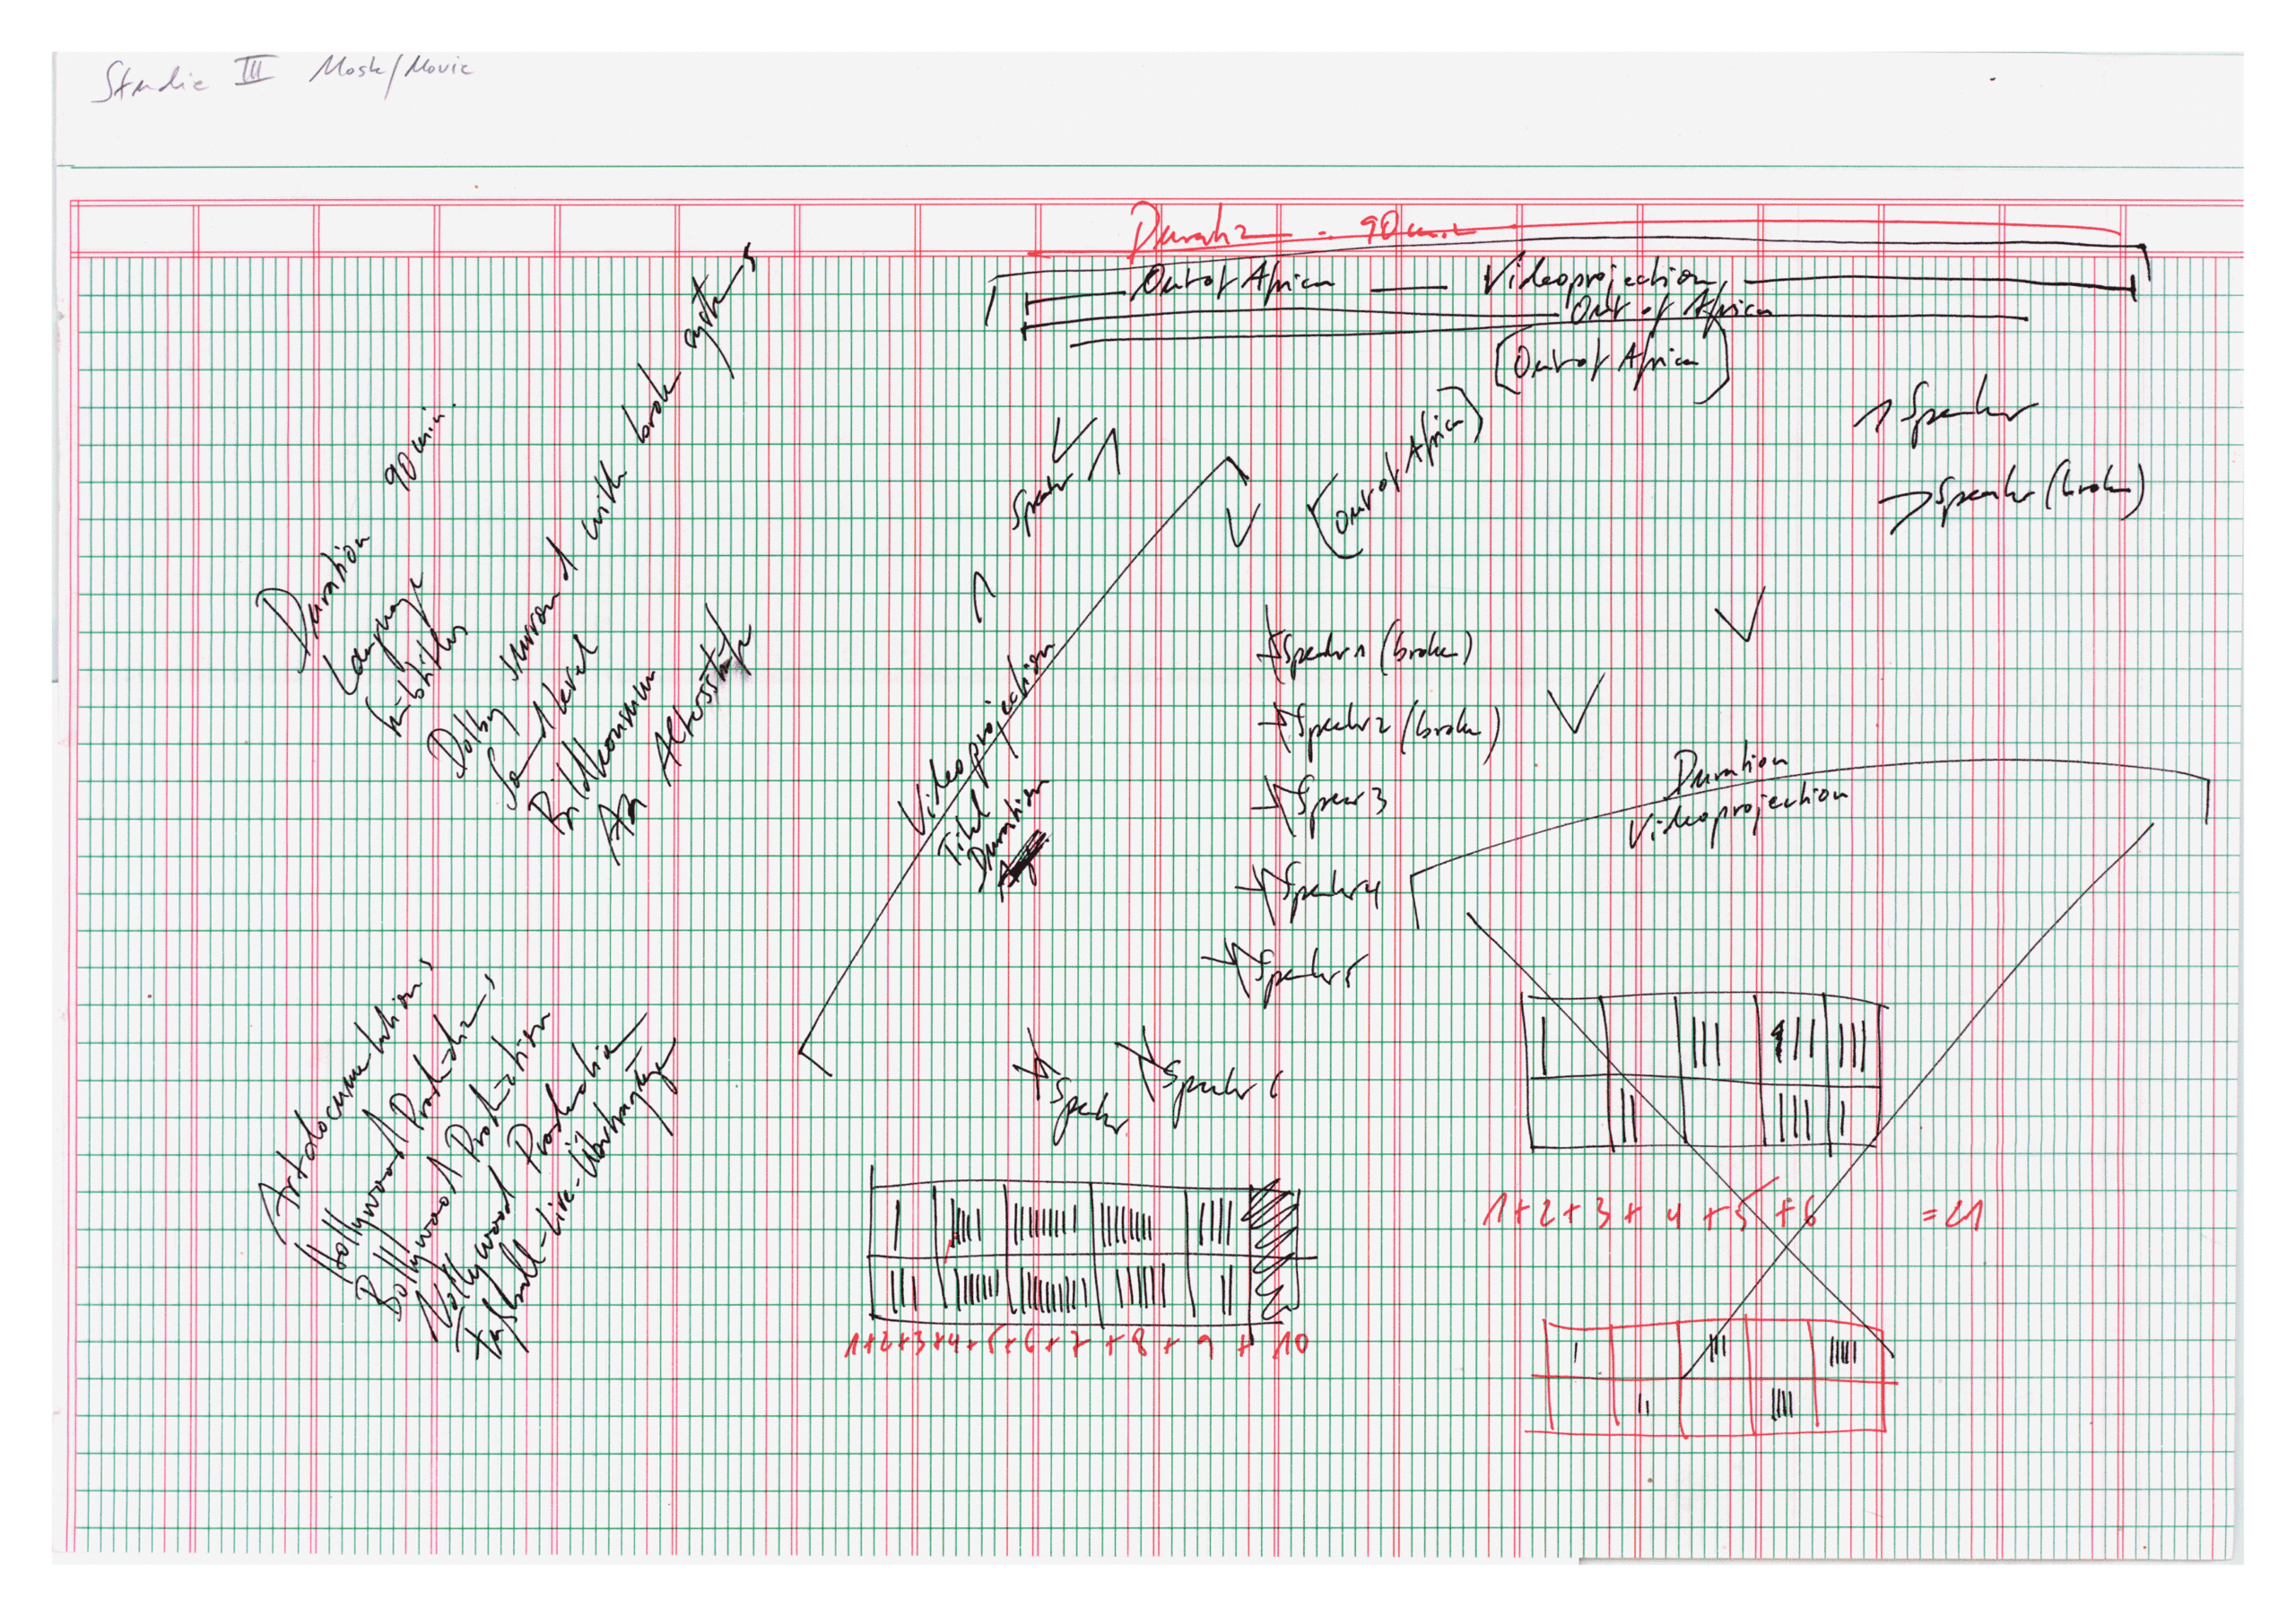 Studie III Mosk/Movie
Duration - 90 min
Out of Africa — Videoprojection
Out of Africa
(Out of Africa)
(Out of Africa)
Speaker
Speaker (broken)
Speaker
Duration 90 min.
Language
Subtitles
Dolby surround with broken systems
Sound level
Bildkonsum
Videoprojection
Titel
Duration
Speaker 1 (broken)
Speaker 2 (broken)
Speaker 3
Speaker 4
Speaker 5
Speaker 6
Speaker
Duration
Videoprojection
Artdocumentations
Hollywood Productions
Bollywood Production
Nollywood Production
Fußball-Live-Übertragung
1+2+3+4+5+6 =21
1+2+3+4+5+6+7+8+9+10